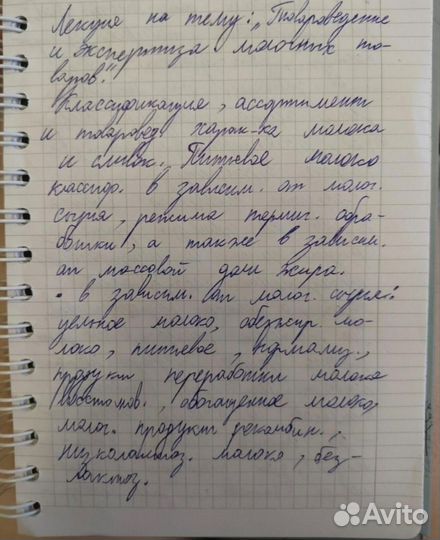 Лекция на тему: „Товароведение
и экспертиза молочных то-
варов."
Классификация, ассортимент
и товаровед. харак-ка молока
и сливок. Питьевое молоко
классиф. в зависим. от молоч.
сырья, режима термич. обра-
ботки, а также в зависим.
от массовой доли жира.
• в зависим. от молоч. сырья:
цельное молоко, обезжир. мо-
локо, питьевое, нормализ.,
продукт переработки молока
восстанов., обогащенное молоко,
молоч. продукт рекомбин.,
низколактоз. молоко, без-
лактоз.
Avito